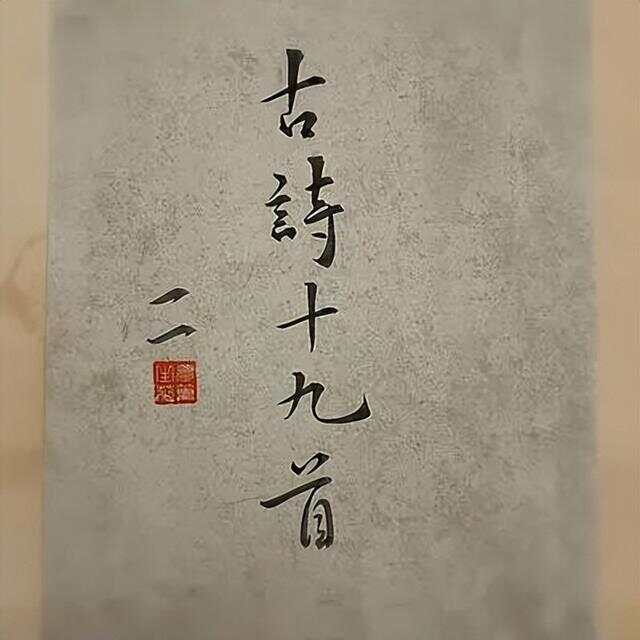 古詩十九首
二